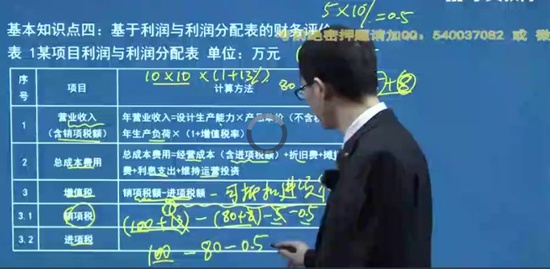 5×10%=0.5
基本知识点四：基于利润与利润分配表的财务评价
请加QQ：540037082 或 微
表 1某项目利润与利润分配表 单位：万元
10×10×(1+13%)
序号 项目 计算方法
1 营业收入（含销项税额） 年营业收入=设计生产能力×产品单价（不含税
年生产负荷×（1+增值税率）
2 总成本费用 总成本费用=经营成本（含进项税额）+折旧费+摊
费+利息支出+维持运营投资
3 增值税 销项税额-进项税额
3.1 销项税
(100+13)-(80+8)-5-0.5
3.2 进项税
100-80-0.5